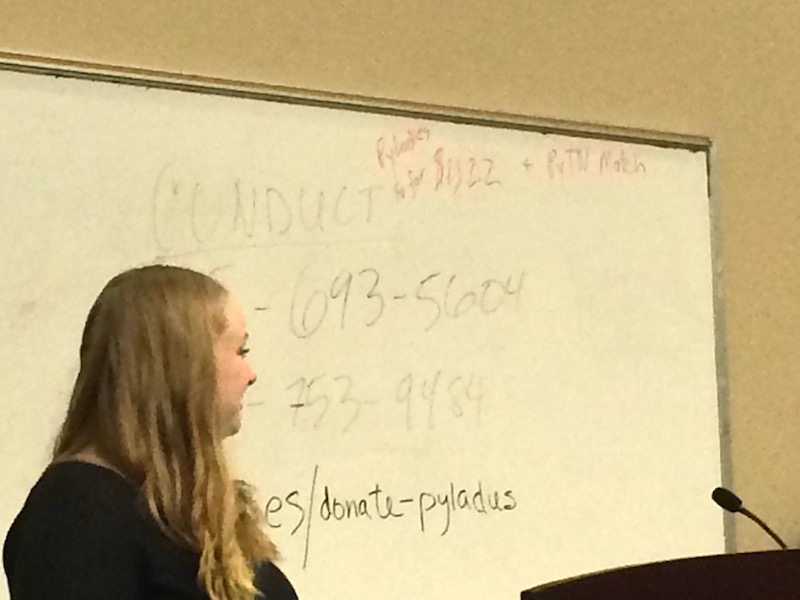 Pyladies
so far $1522 + PyTN Match
CONDUCT
- 693-5604
- 753-9484
es/donate-pyladus